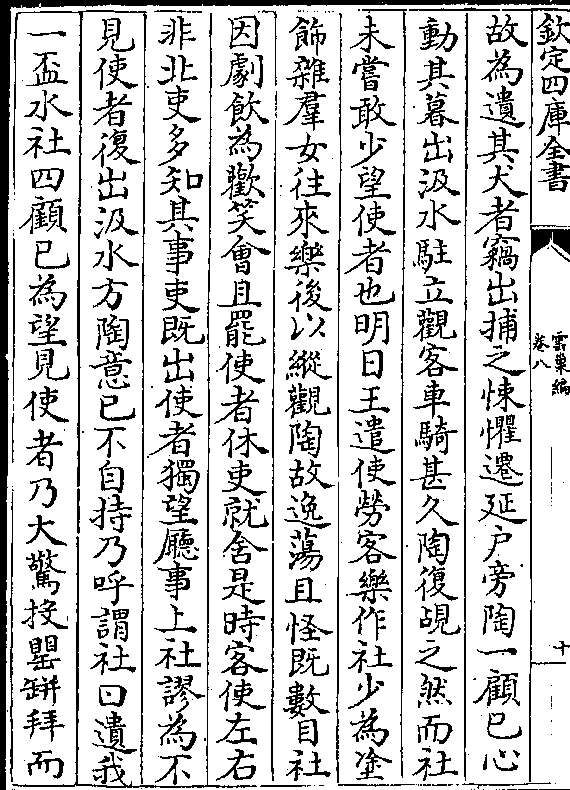 欽定四庫全書
雲巢編
卷八
十
故為遺其犬者竊出捕之悚懼遷延户旁陶一顧已心
動其暮出汲水駐立觀客車騎甚久陶復覘之然而社
未嘗敢少望使者也明日王遣使勞客樂作社少為塗
飾雜羣女往來樂後以縱觀陶故逸蕩且怪既數目社
因劇飲為歡笑會且罷使者休吏就舍是時客使左右
非北吏多知其事吏既出使者獨望廳事上社謬為不
見使者復出汲水方陶意已不自持乃呼謂社曰遺我
一盃水社四顧已為望見使者乃大驚投罌缾拜而